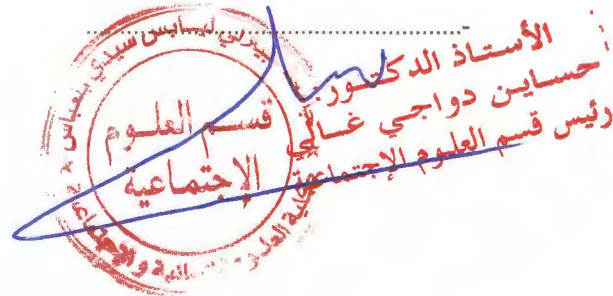 الأستاذ الدكتور:
حساين دواجي غالي
رئيس قسم العلوم الإجتماعية
قسم العلوم
الإجتماعية
ليابس سيدي بلعباس
كلية العلوم